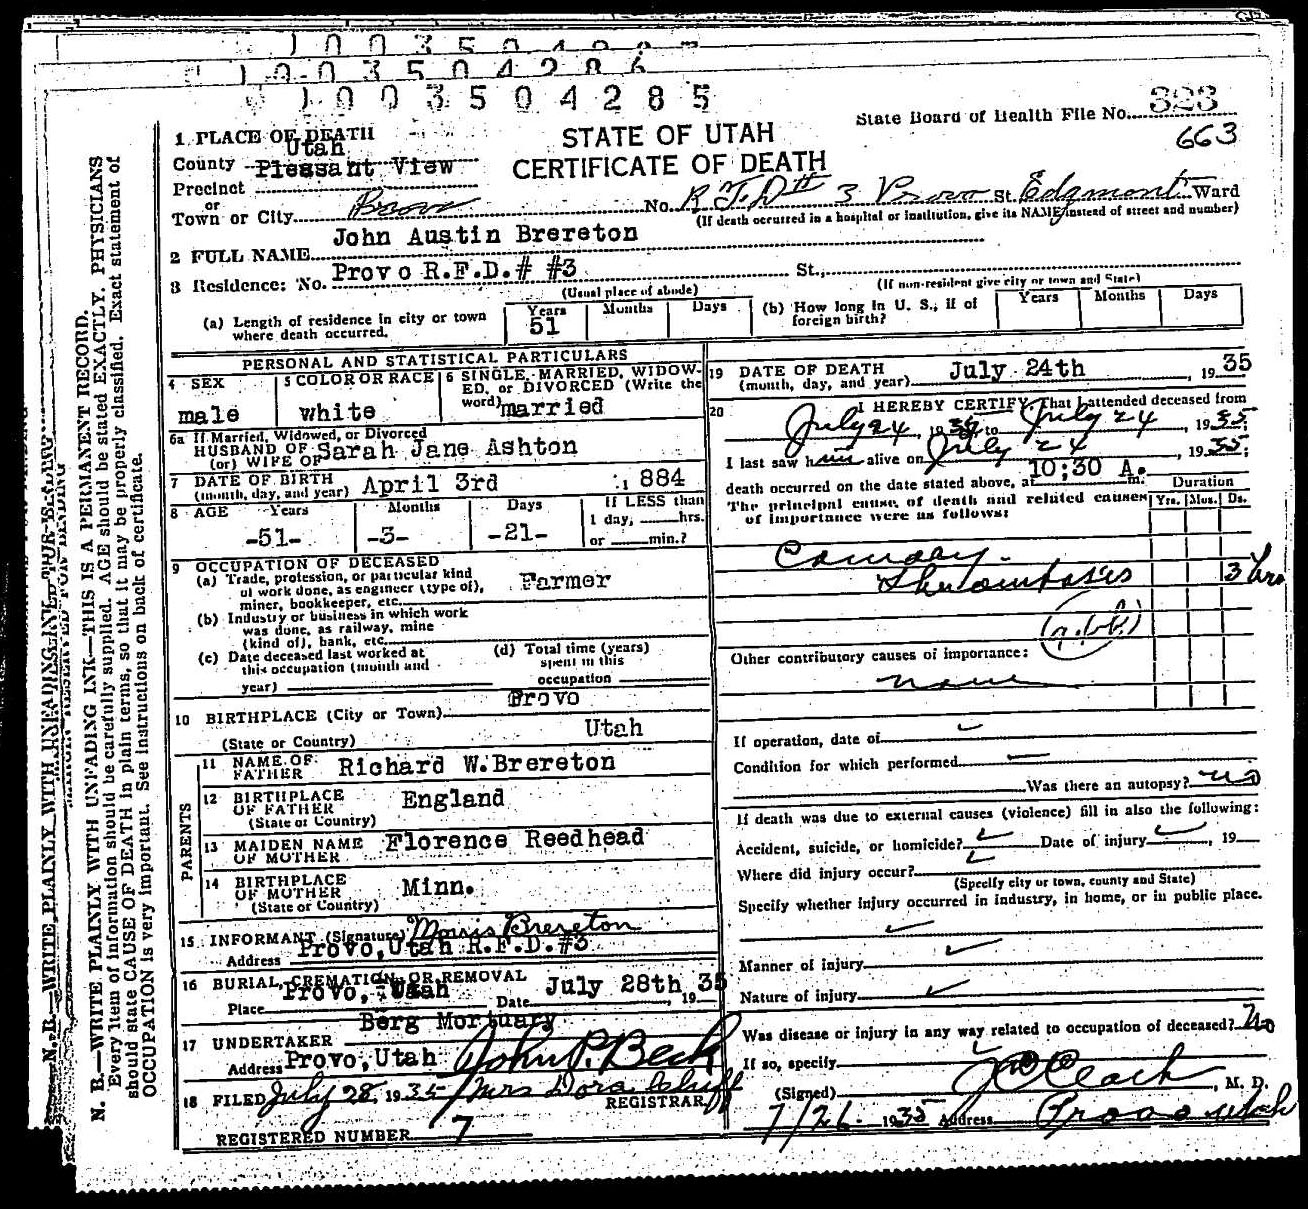 1003504285
State Board of Health File No. 323
663
STATE OF UTAH
CERTIFICATE OF DEATH
1 PLACE OF DEATH
County Utah
Precinct Pleasant View
or
Town or City Provo No. R.F.D # 3 Provo St. Edgmont Ward
(If death occurred in a hospital or institution, give its NAME instead of street and number)
2 FULL NAME John Austin Brereton
3 Residence: No. Provo R.F.D.# #3 St.,
(Usual place of abode) (If non-resident give city or town and State)
(a) Length of residence in city or town where death occurred. Years 51 Months Days (b) How long in U. S., if of foreign birth? Years Months Days
PERSONAL AND STATISTICAL PARTICULARS
4 SEX male
5 COLOR OR RACE white
6 SINGLE, MARRIED, WIDOWED, or DIVORCED (Write the word) married
6a If Married, Widowed, or Divorced
HUSBAND OF
(or) WIFE OF Sarah Jane Ashton
7 DATE OF BIRTH
(month, day, and year) April 3rd 1884
8 AGE Years -51- Months -3- Days -21- If LESS than
1 day, hrs.
or min.?
9 OCCUPATION OF DECEASED
(a) Trade, profession, or particular kind
of work done, as engineer (type of),
miner, bookkeeper, etc. Farmer
(b) Industry or business in which work
was done, as railway, mine
(kind of), bank, etc.
(c) Date deceased last worked at
this occupation (month and
year)
(d) Total time (years)
spent in this
occupation
10 BIRTHPLACE (City or Town) Provo
(State or Country) Utah
PARENTS
11 NAME OF
FATHER Richard W. Brereton
12 BIRTHPLACE
OF FATHER England
(State or Country)
13 MAIDEN NAME
OF MOTHER Florence Reedhead
14 BIRTHPLACE
OF MOTHER Minn.
(State or Country)
15 INFORMANT (Signature) Morris Brereton
Address Provo, Utah R.F.D.#3
16 BURIAL, CREMATION OR REMOVAL
Place Provo, Utah Date July 28th, 1935
17 UNDERTAKER Berg Mortuary
Address Provo, Utah John P. Beck
18 FILED July 28, 1935 Mrs Dora
REGISTRAR
REGISTERED NUMBER 7
19 DATE OF DEATH
(month, day, and year) July 24th, 1935
20 I HEREBY CERTIFY, That I attended deceased from
July 24, 1935 to July 24, 1935;
I last saw him alive on July 24, 1935;
death occurred on the date stated above, at 10:30 A. m.
The principal cause of death and related causes
of importance were as follows:
Duration
Yrs. Mos. Ds.
Coronary
Thrombosis 3 hrs
Other contributory causes of importance:
none
If operation, date of
Condition for which performed
Was there an autopsy? no
If death was due to external causes (violence) fill in also the following:
Accident, suicide, or homicide? Date of injury, 19
Where did injury occur?
(Specify city or town, county and State)
Specify whether injury occurred in industry, in home, or in public place.
Manner of injury
Nature of injury
Was disease or injury in any way related to occupation of deceased? No
If so, specify
(Signed) Clark, M. D.
7/26 1935 Address Provo Utah
N. B.—WRITE PLAINLY WITH UNFADING INK—THIS IS A PERMANENT RECORD.
Every item of information should be carefully supplied. AGE should be stated EXACTLY. PHYSICIANS
should state CAUSE OF DEATH in plain terms, so that it may be properly classified. Exact statement of
OCCUPATION is very important. See instructions on back of certificate.